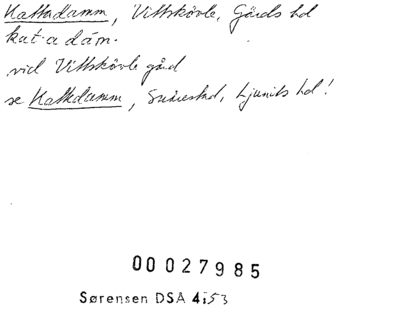 Kattadamm, Vittskövle, Gärds hd
kat·a dám·
vid Vittskövle gård
se Kattdamm, Svärestad, Ljunits hd!
00027985
Sørensen DSA 4:53